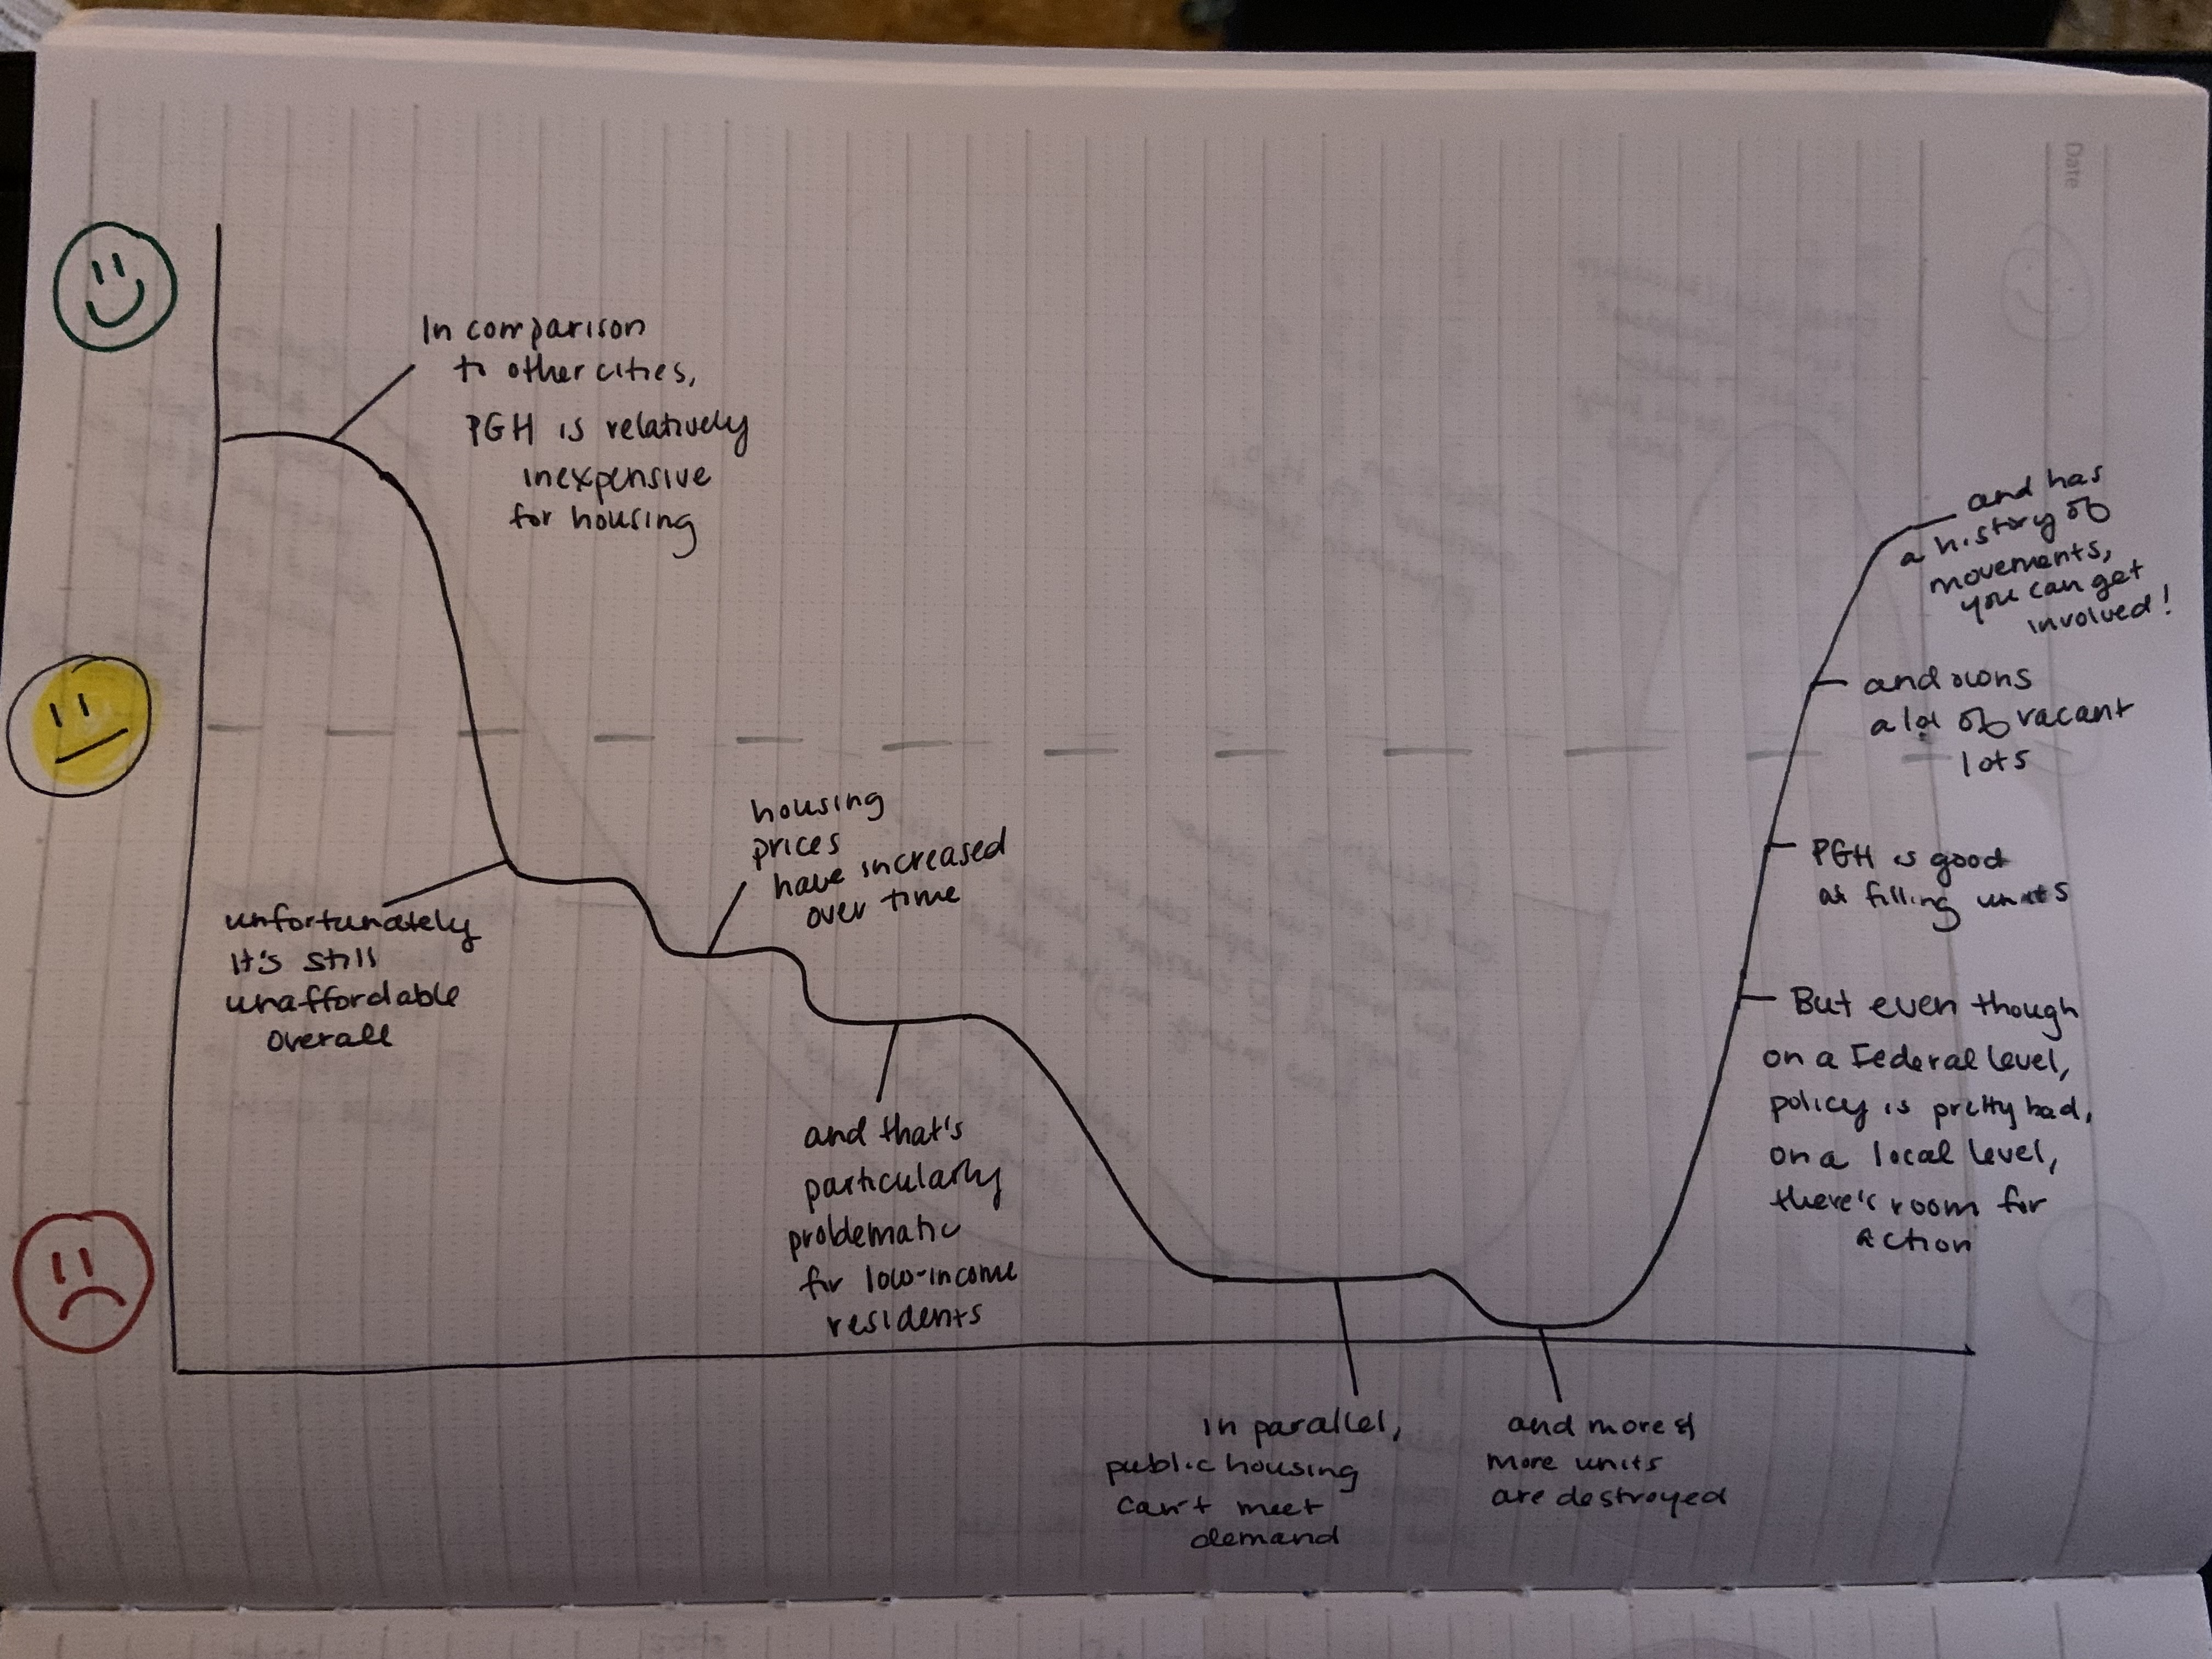 Date
In comparison
to other cities,
PGH is relatively
inexpensive
for housing
unfortunately
it's still
unaffordable
overall
housing
prices
have increased
over time
and that's
particularly
problematic
for low-income
residents
in parallel,
public housing
can't meet
demand
and more &
more units
are destroyed
But even though
on a Federal level,
policy is pretty bad,
on a local level,
there's room for
action
PGH is good
at filling units
and owns
a lot of vacant
lots
and has
a history of
movements,
you can get
involved!